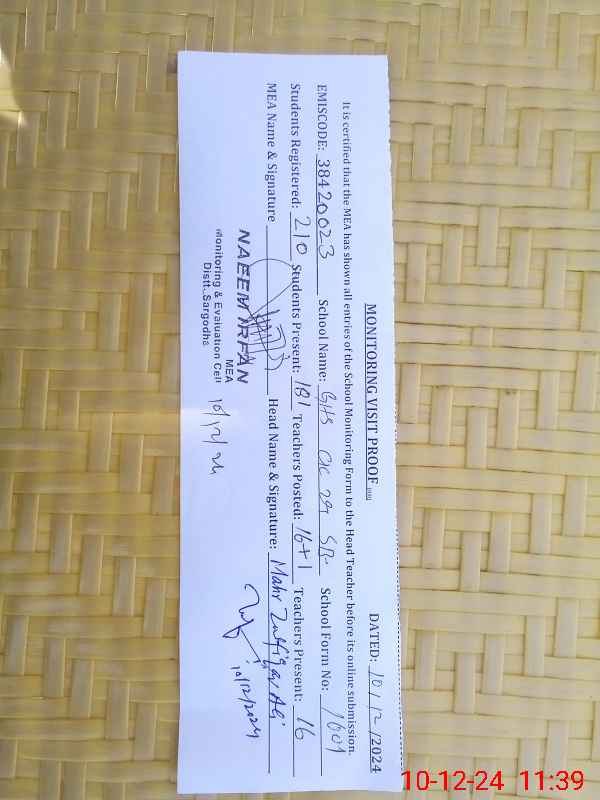 MONITORING VISIT PROOF DATED: 10/12/2024
It is certified that the MEA has shown all entries of the School Monitoring Form to the Head Teacher before its online submission.
EMISCODE: 38420023 School Name: GHS School Form No:
Students Registered: 210 Students Present: 181 Teachers Posted: 16+1 Teachers Present: 16
MEA Name & Signature Head Name & Signature: Mahr Zulfiqar Ali
NAEEM IRFAN
MEA
Monitoring & Evaluation Cell
Distt. Sargodha
10/12/24
10/12/2024
10-12-24 11:39